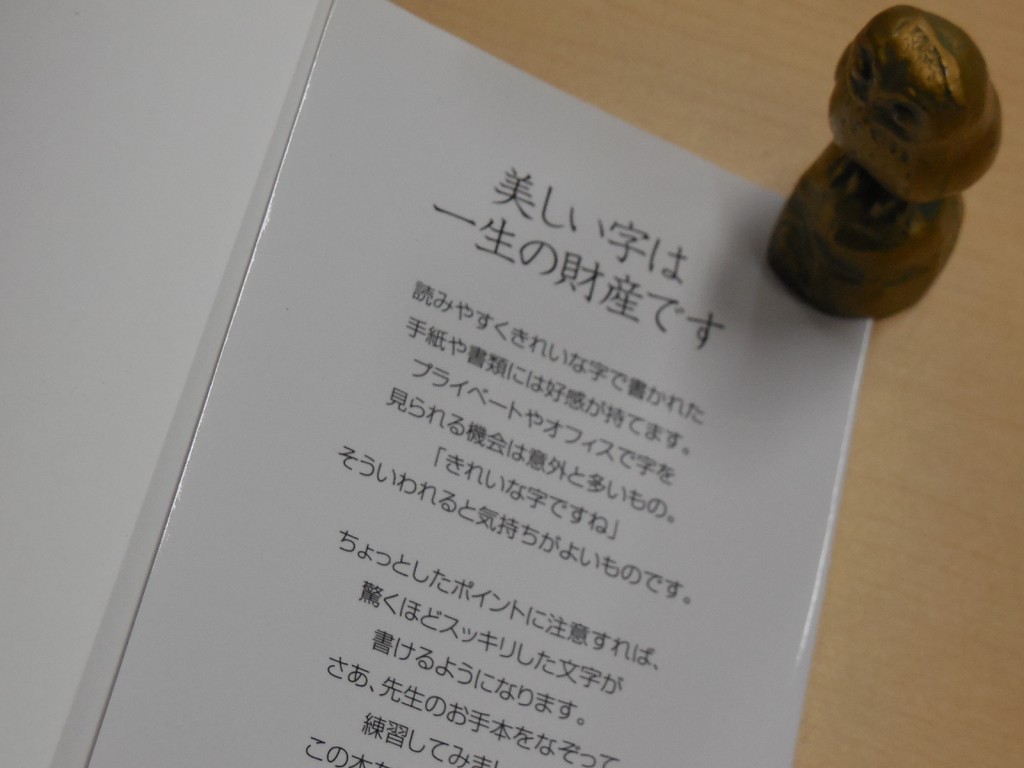 美しい字は
一生の財産です
読みやすくきれいな字で書かれた
手紙や書類には好感が持てます。
プライベートやオフィスで字を
見られる機会は意外と多いもの。
「きれいな字ですね」
そういわれると気持ちがよいものです。
ちょっとしたポイントに注意すれば、
驚くほどスッキリした文字が
書けるようになります。
さあ、先生のお手本をなぞって
練習してみまし
この本